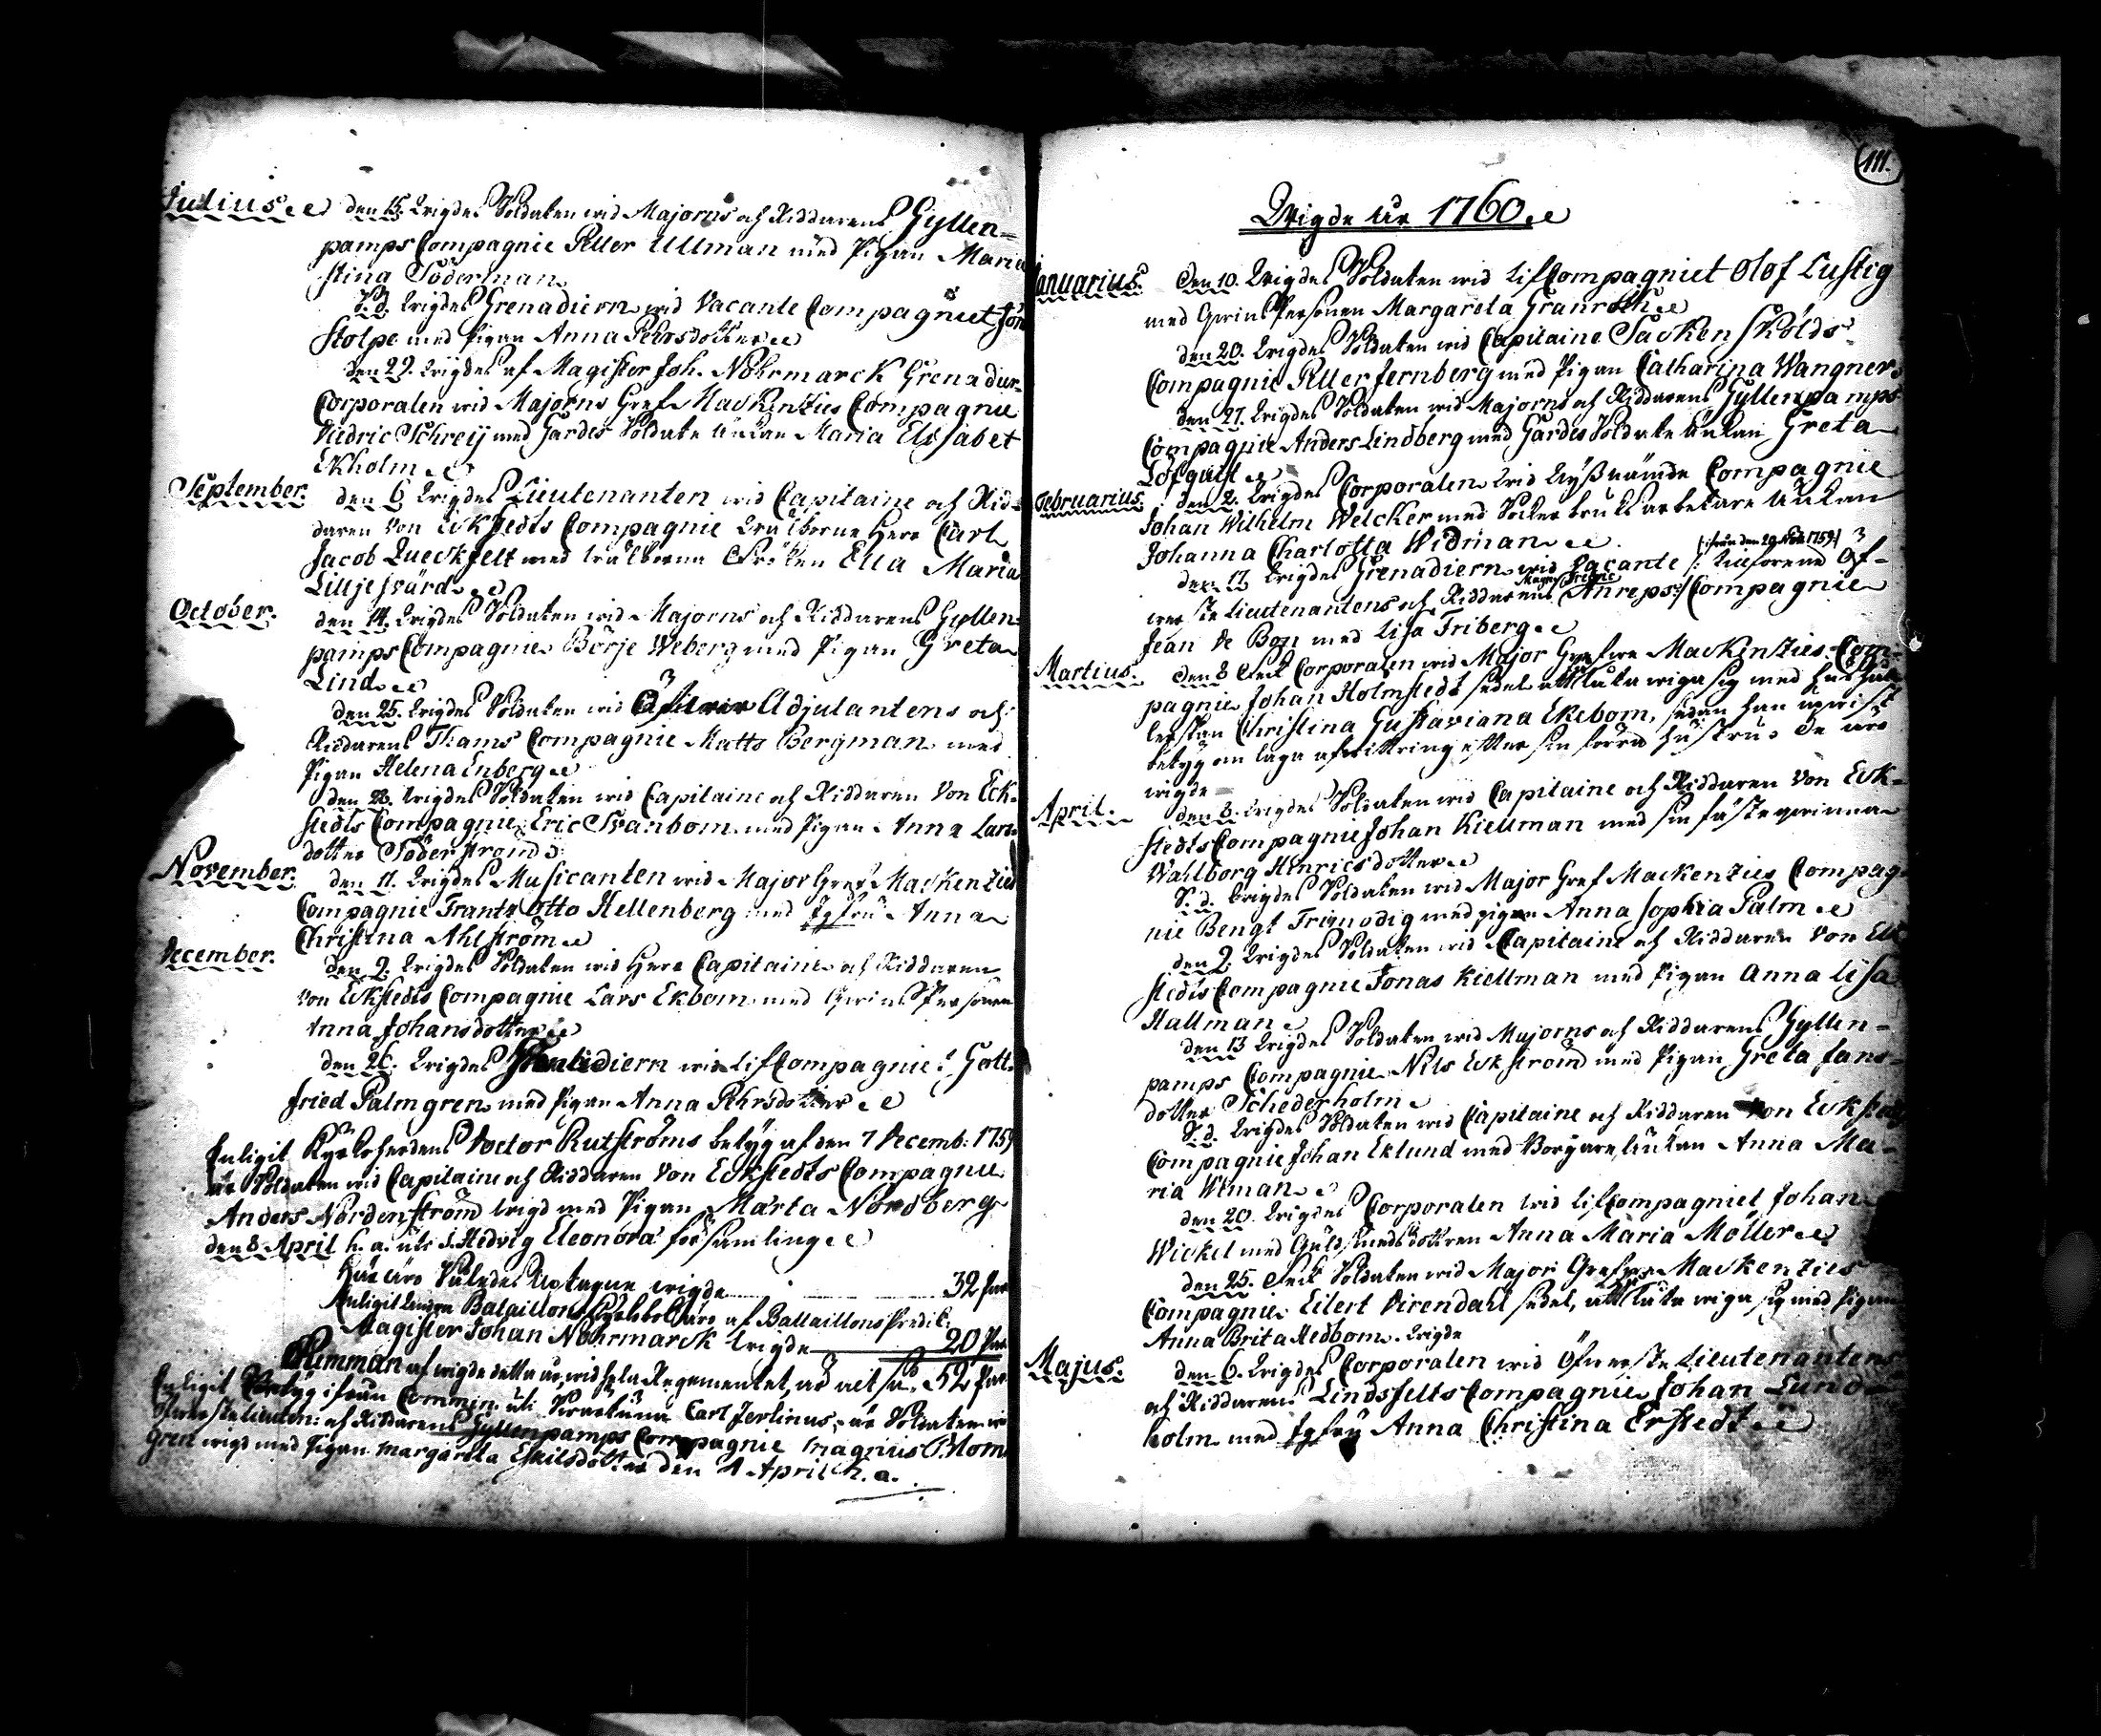 Julius. den 15. Wigdes Soldaten wid Majorns och Riddarens Gyllen-
pamps Compagnie Petter Ullman med Pigan Maria
Stina Söderman
S. d. Wigdes Grenadiern wid Vacante Compagniet Jöns
Stolpe med Pigan Anna Pehrsdotter
den 29. Wigdes af Magister Joh. Nohrmarck Grenadier
Corporalen wid Majorns Gref Mackenzies Compagnie
Didric Schreij med Gardes Soldate Änkan Maria Elisabet
Ekholm
September. den 6 Wigdes Lieutenanten wid Capitaine och Rid-
daren von Eckstedts Compagnie Wälborne Herr Carl
Jacob Queckfelt med wälborna Fröken Ella Maria
Lilljesvärd
October. den 14. Wigdes Soldaten wid Majorns och Riddarens Gyllen-
pamps Compagnie Börje Weberg med Pigan Greta
Lind
den 25. Wigdes Soldaten wid Adjutantens och
Riddarens Thams Compagnie Matts Bergman med
Pigan Helena Enberg
den 28. Wigdes Soldaten wid Capitaine och Riddaren Von Eck-
stedts Compagnie Eric Svanbom med Pigan Anna Lars-
dotter Söderström
November. den 11. Wigdes Musicanten wid Major Gref Mackenzies
Compagnie Frantz Otto Hellenberg med Jgfru Anna
Christina Ahlström
December. den 2. Wigdes Soldaten wid Herr Capitaine och Riddaren
von Eckstedts Compagnie Lars Ekbom med Qwins Personen
Anna Johansdotter
den 26. Wigdes wid Lif Compagniet Gott-
fried Palmgren med Pigan Anna Pehrsdotter
Enligit Kyrkoherdens Doctor Rutströms betyg af den 7 Decemb: 1759
är Soldaten wid Capitaine och Riddaren Von Eckstedts Compagnie
Anders Nordenström wigd med Pigan Marta Nordberg
den 8 April h. a. uti S. Hedvig Eleonora församling
Här äro således Antagne wigde 32 par
Enligit Bataillons äro af Battaillons Predik.
Magister Johan Nohrmarck Wigde 20 Par
Summan af wigde detta år wid hela Regementet, är altså 52 par
Enligit Betyg ifrån Commin. uti Carl Jerlinus, är Soldaten wid
Öfwerste Lieuten: och Riddarens Gyllenpamps Compagnie Magnus Blom
gren wigd med Pigan Margareta Eskilsdotter den 1 April h. a.
111.
Wigde År 1760.
Januarius. den 10. Wigdes Soldaten wid Lif Compagniet Olof Lustig
med Qwins Personen Margareta Granroth
den 20. Wigdes Soldaten wid Capitaine Sacken Skölds
Compagnie Petter Fernberg med Pigan Catharina Wangners
den 27. Wigdes Soldaten wid Majorns och Riddarens Gyllenpamps
Compagnie Anders Lindberg med Gardes Soldate Änkan Greta
Löfquist
Februarius. den 2. Wigdes Corporalen wid Nyßnämde Compagnie
Johan Wilhelm Welcker med Sockerbruks arbetare Änkan
Johanna Charlotta Widman
(:ifrån den 29 Nov. 1759:)
den 17 Wigdes Grenadiern wid Vacante /: tilförene Öf-
wer ste Lieutenantens och Riddarens Anreps :/ Compagnie
Jean de Bon med Lisa Friberg
Martius. den 8 Corporalen wid Major Grefwe Mackenzies Com-
pagnie Johan Holmstedt sedel att låta wiga sig med
Christina Gustaviana Ekebom, sedan han upwist
betyg om laga afwittring efter sin förra Hustru. De äro
wigde
April. den 8. Wigdes Soldaten wid Capitaine och Riddaren von Eck-
stedts Compagnie Johan Kiellman med sin fästeqwinna
Walborg Hinricsdotter
S. d. Wigdes Soldaten wid Major Gref Mackenzies Compag-
nie Bengt Frimodig med pigan Anna Sophia Palm
den 9. Wigdes Soldaten wid Capitaine och Riddaren von Eck-
stedts Compagnie Jonas Kiellman med Pigan Anna Lisa
Hallman
den 13 Wigdes Soldaten wid Majorns och Riddarens Gyllen-
pamps Compagnie Nils Eckström med Pigan Greta Jans-
dotter Schederholm
S. d. Wigdes Soldaten wid Capitaine och Riddaren von Eckstedts
Compagnie Johan Eklund med Borgare Änkan Anna Ma-
ria Wman
den 20. Wigdes Corporalen wid Lif Compagniet Johan
Wickel med Guldsmeds dottren Anna Maria Möller
den 25. Soldaten wid Major Grefwe Mackenzies
Compagnie Eilert Direndahl sedel, att låta wiga sig med Pigan
Anna Brita Hedbom. Wigde
Majus. den 6. Wigdes Corporalen wid Öfwerste Lieutenantens
och Riddarens Lindsfelts Compagnie Johan Lund-
holm med Jgfru Anna Christina Erstedt